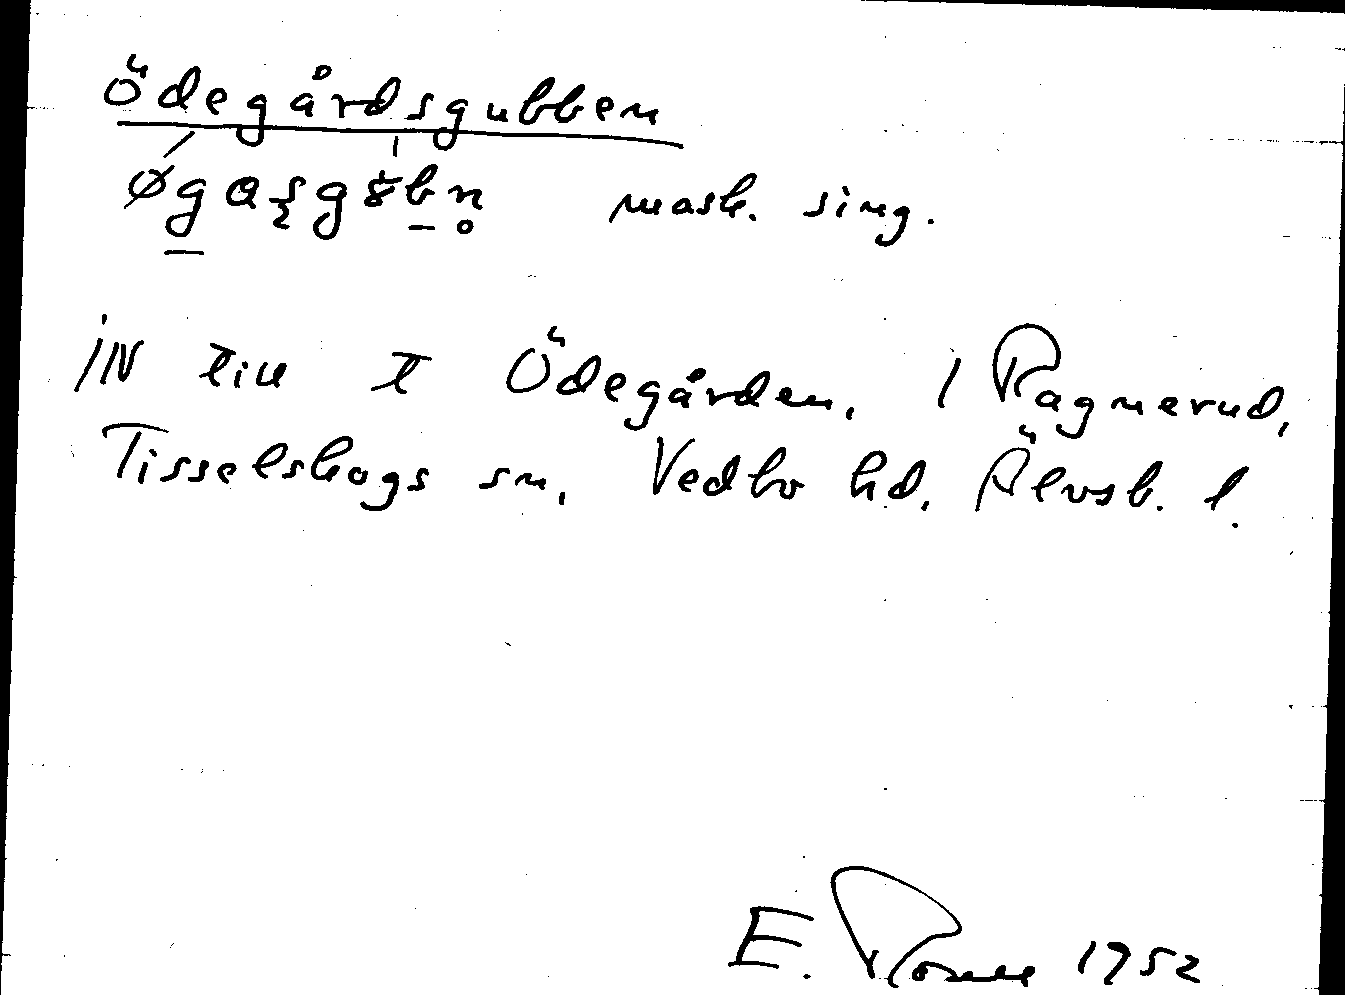 Ödegårdsgubben
mask. sing.
IN till T Ödegården, 1 Ragnerud,
Tisselskogs sn, Vedbo hd, Älvsb. l.
E. 1952